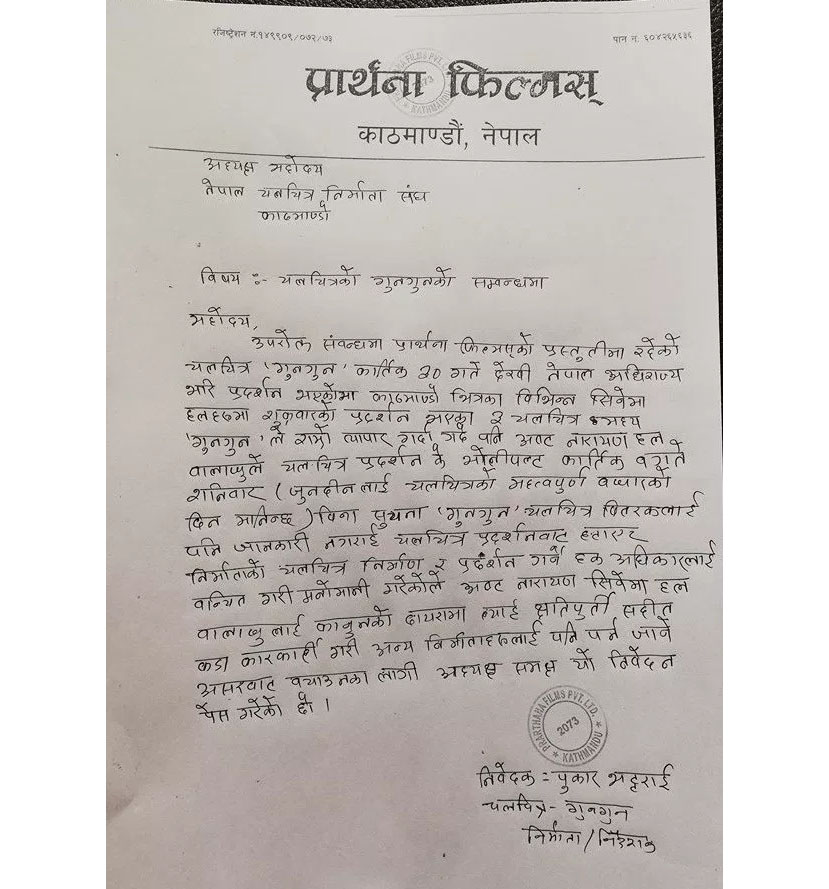 रजिष्ट्रेशन नं.१४९९०९/०७२/७३
पान नं. ६०४२६५६३६
प्रार्थना फिल्मस्
काठमाण्डौं, नेपाल
अध्यक्ष महोदय
नेपाल चलचित्र निर्माता संघ
काठमाण्डौ
विषय :- चलचित्रको गुनगुनको सम्बन्धमा
महोदय,
उपरोक्त संवन्धमा प्रार्थना फिल्मस्को प्रस्तुतीमा रहेको
चलचित्र 'गुनगुन' कार्तिक २० गते देखी नेपाल अधिराज्य
भरि प्रदर्शन भएकोमा काठमाण्डौ भित्रका विभिन्न सिनेमा
हलहरुमा शुक्रवारको प्रदर्शन भएका २ चलचित्र मध्य
'गुनगुन' ले राम्रो व्यापार गर्दा गर्दै पनि अष्ट नारायण हल
वालाज्युले चलचित्र प्रदर्शन कै भोलीपल्ट कार्तिक २१ गते
शनिवार (जुनदीनलाई चलचित्रको महत्वपुर्ण वप्पारको
दिन मानिन्छ) विना सुचना 'गुनगुन' चलचित्र वितरकलाई
पनि जानकारी नगराई चलचित्र प्रदर्शनवाट हताएर
निर्माताको चलचित्र निर्माण र प्रदर्शन गर्ने हक अधिकारलाई
वन्चित गरी मनोमानी गरेकोले अष्ट नारायण सिनेमा हल
वालाज्युलाई कानुनको दायरामा ल्याई क्षतिपुर्ती सहीत
कडा कारवाही गरी अन्य निर्माताहरुलाई पनि पर्न जाने
असरवाट वचाउनका लागी अध्यक्ष समक्ष यो निवेदन
पेस गरेको छौ ।
PRARTHANA FILMS PVT. LTD.
2073
* KATHMANDU *
निवेदक = पुकार भट्टराई
चलचित्र - गुनगुन
निर्माता / निर्देशक